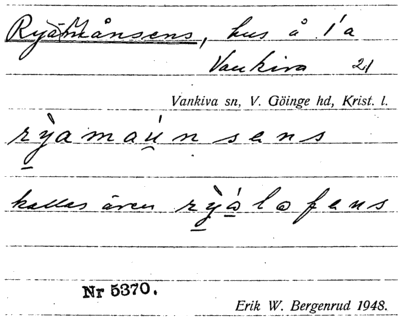 Ryamånsens, hus å 1/a
Vankiva 21
Vankiva sn, V. Göinge hd, Krist. l.
rỳamaúnsens
kallas även rỳålofens
Nr 5370.
Erik W. Bergenrud 1948.